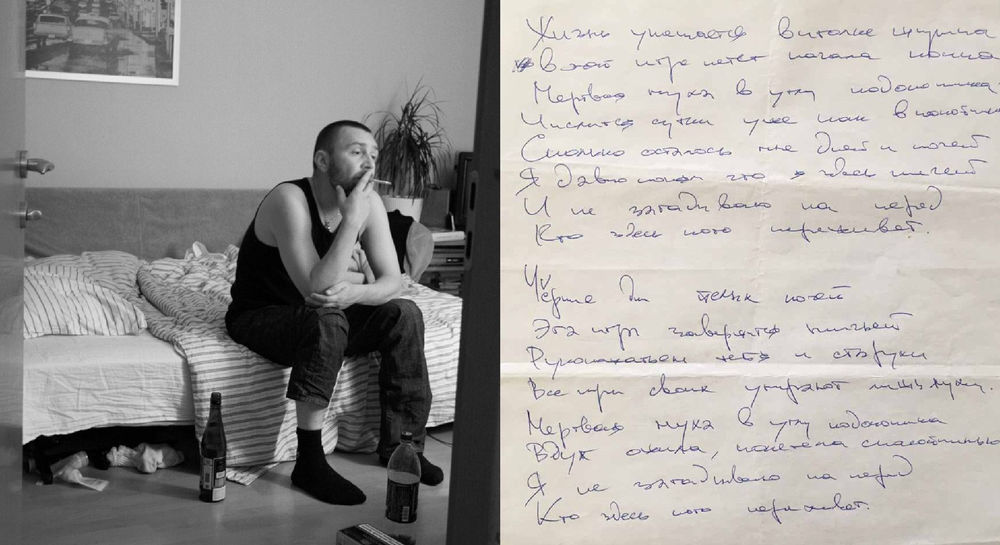 Жизнь умещается в иголке шприца
В этой игре нету начала конца
Мертвая муха в углу подоконника
Числится сутки уже как
Сколько осталось мне дней и ночей
Я давно понял что здесь ничей
И не загадываю на перед
Кто здесь кого переживет.
Черные дни ночей
Эта игра завершится ничьей
Рукопожатьем и старухи
Все при своих умирают лишь мухи.
Мертвая муха в углу подоконника
Вдруг ожила, полетела спокойненько
Я не загадываю на перед
Кто здесь кого переживет.